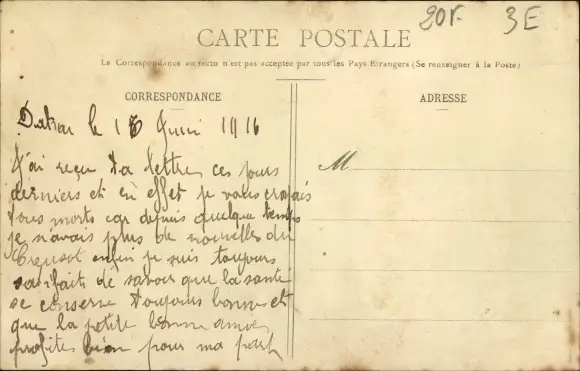 20F. 3E
CARTE POSTALE
La Correspondance au recto n'est pas acceptée par tous les Pays Etrangers (Se renseigner à la Poste)
CORRESPONDANCE
ADRESSE
Dakar le 15 Juin 1916
J'ai reçu ta lettre ces jours
derniers et en effet je vous croyais
tous morts car depuis quelque temps
je n'avais plus de nouvelles du
Creusot enfin je suis toujours
satisfait de savoir que la santé
se conserve toujours bonne et
que la petite bonne amie
profites bien pour ma part
M